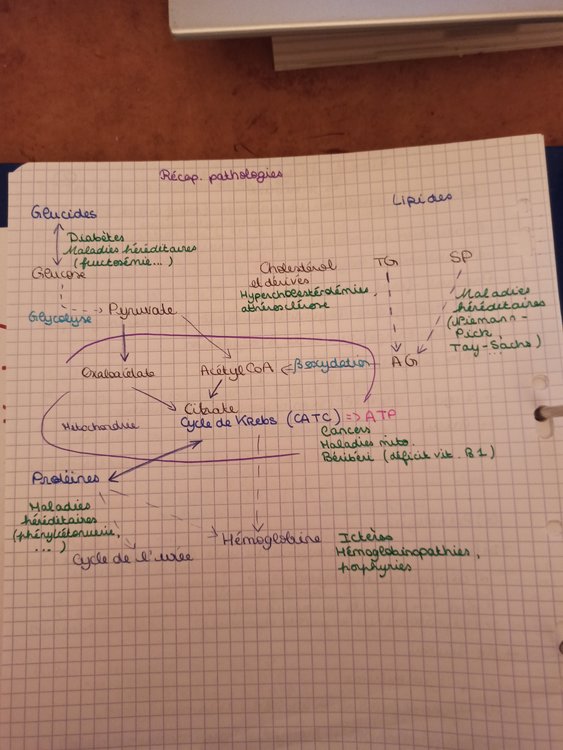 Récap. pathologies
Glucides
Lipides
Diabètes
Maladies héréditaires
(fructosémie...)
Glucose
Cholestérol
et dérivés
Hypercholestérolémies,
athérosclérose
TG
SP
Maladies
héréditaires
(Niemann-
Pick,
Tay-Sachs)
...
Glycolyse
Pyruvate
Oxaloacétate
Acétyl CoA
βoxydation
AG
Citrate
Mitochondrie
Cycle de Krebs (CATC) => ATP
Cancers
Maladies mito.
Béribéri (déficit vit. B1)
Protéines
Maladies
héréditaires
(phénylcétonurie,
...)
Cycle de l'urée
Hémoglobine
Ictères
Hémoglobinopathies,
porphyries